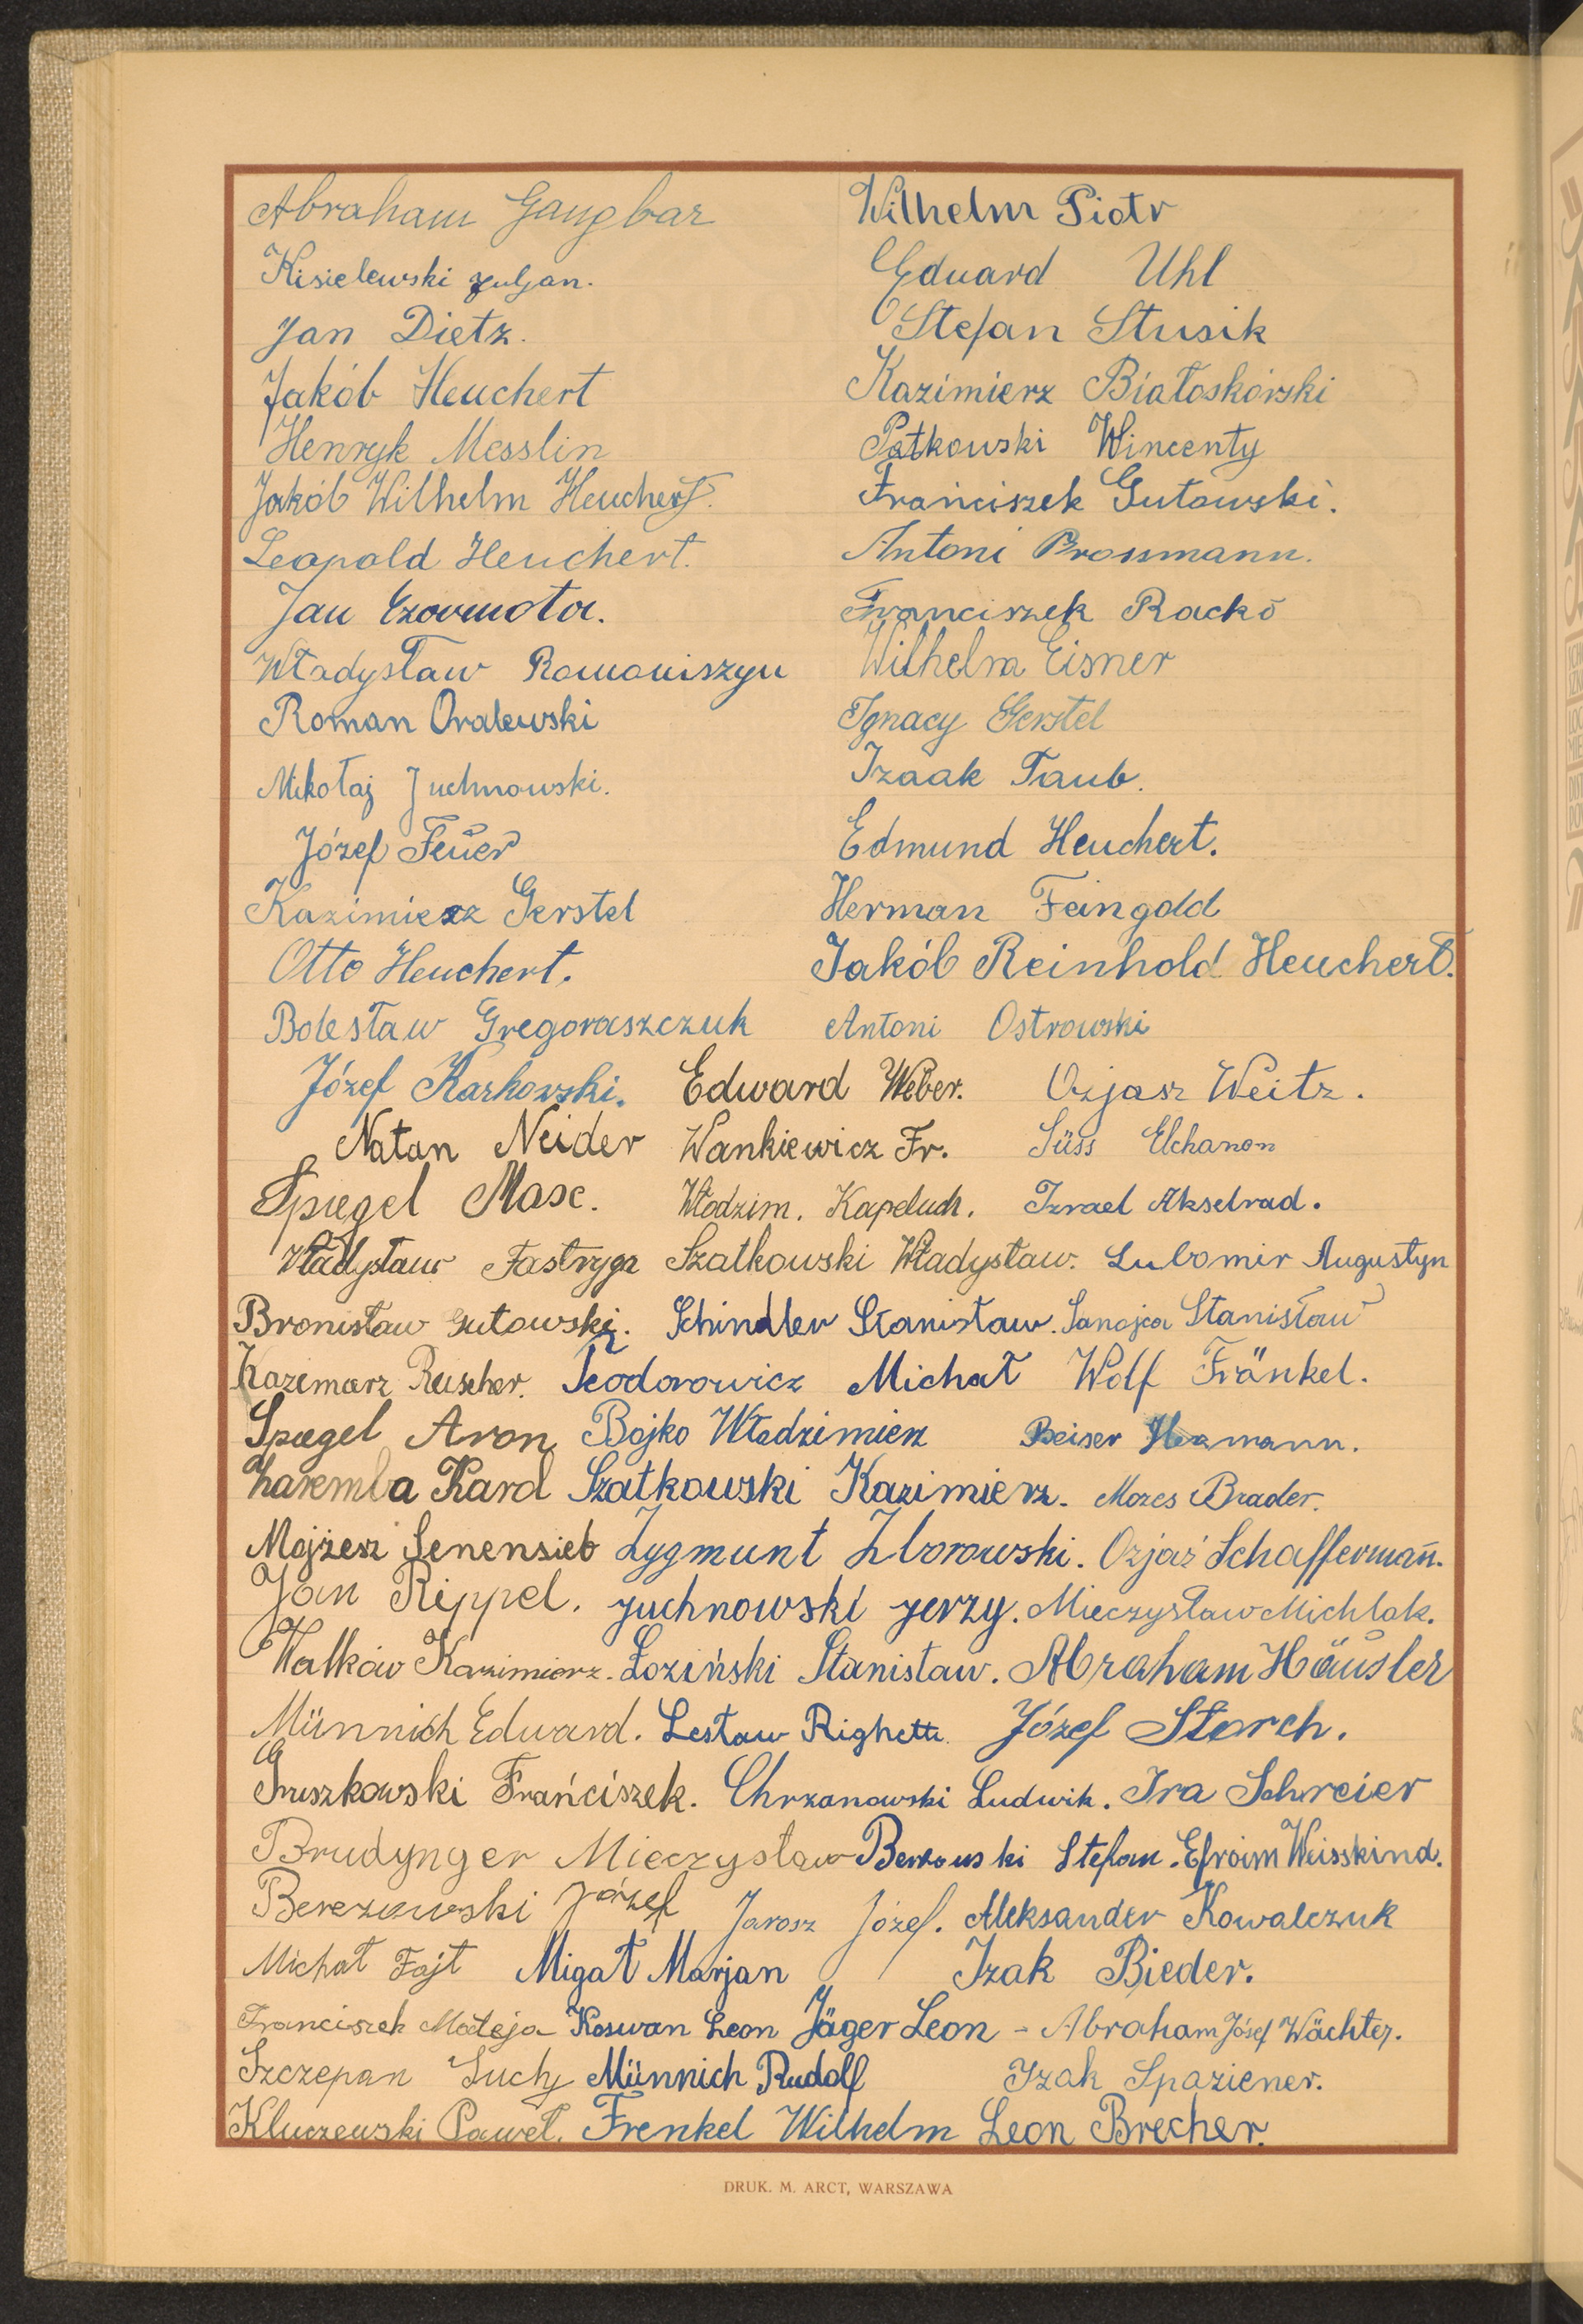 Abraham Gangbar Wilhelm Piotr
Kisielewski Juljan. Eduard Uhl
Jan Dietz. Stefan Stusik
Jakób Heuchert Kazimierz Białoskórski
Henryk Messlin Patkowski Wincenty
Jakób Wilhelm Heuchert. Franciszek Gutowski.
Leopold Heuchert. Antoni Prossmann.
Jan Czarnota. Franciszek Racko
Władysław Romaniszyn Wilhelm Eisner
Roman Oralewski Ignacy Gerstel
Mikołaj Juchnowski. Izaak Taub.
Józef Feuer Edmund Heuchert.
Kazimierz Gerstel Herman Feingold
Otto Heuchert. Jakób Reinhold Heuchert.
Bolesław Gregoraszczuk Antoni Ostrowski
Józef Karkowski. Edward Weber. Ozjasz Weitz.
Natan Neider Wankiewicz Fr. Süss Elchanon
Spiegel Max. Włodzim. Kapeluch. Izrael Akselrad.
Władysław Fastryga Szatkowski Władysław. Lubomir Augustyn
Bronisław Gutowski. Schindler Stanisław. Sanojca Stanisław
Kazimierz Reischer. Teodorowicz Michał Wolf Fränkel.
Spiegel Aron Bojko Włodzimierz Beiser Hermann.
Zaremba Karol Szatkowski Kazimierz. Mozes Brader.
Mojżesz Senensieb Zygmunt Zborowski. Ozjaś Schaffermañ.
Jan Rippel. Juchnowski Jerzy. Mieczysław Michlak.
Walków Kazimierz. Łoziński Stanisław. Abraham Häusler
Münnich Edward. Lesław Righetti. Józef Storch.
Gruszkowski Franciszek. Chrzanowski Ludwik. Ira Schreier
Brudynger Mieczysław Berkowski Stefan. Efroim Weisskind.
Berezowski Józef Jarosz Józef. Aleksander Kowalczuk
Michał Fajt Migał Marjan Izak Bieder.
Franciszek Mateja Koswan Leon Jäger Leon - Abraham Józef Wächter.
Szczepan Suchy Münnich Rudolf Izak Spaziener.
Kluczewski Paweł. Frenkel Wilhelm Leon Brecher.
DRUK. M. ARCT, WARSZAWA